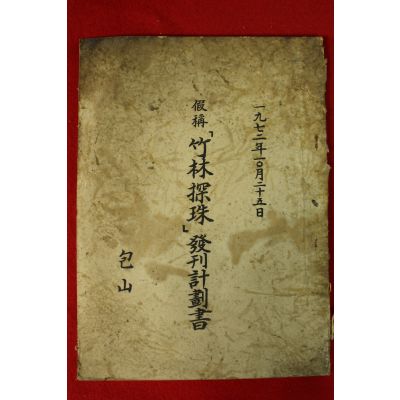 一九七二年一○月二十五日
假稱「竹林探珠」發刊計劃書
包山